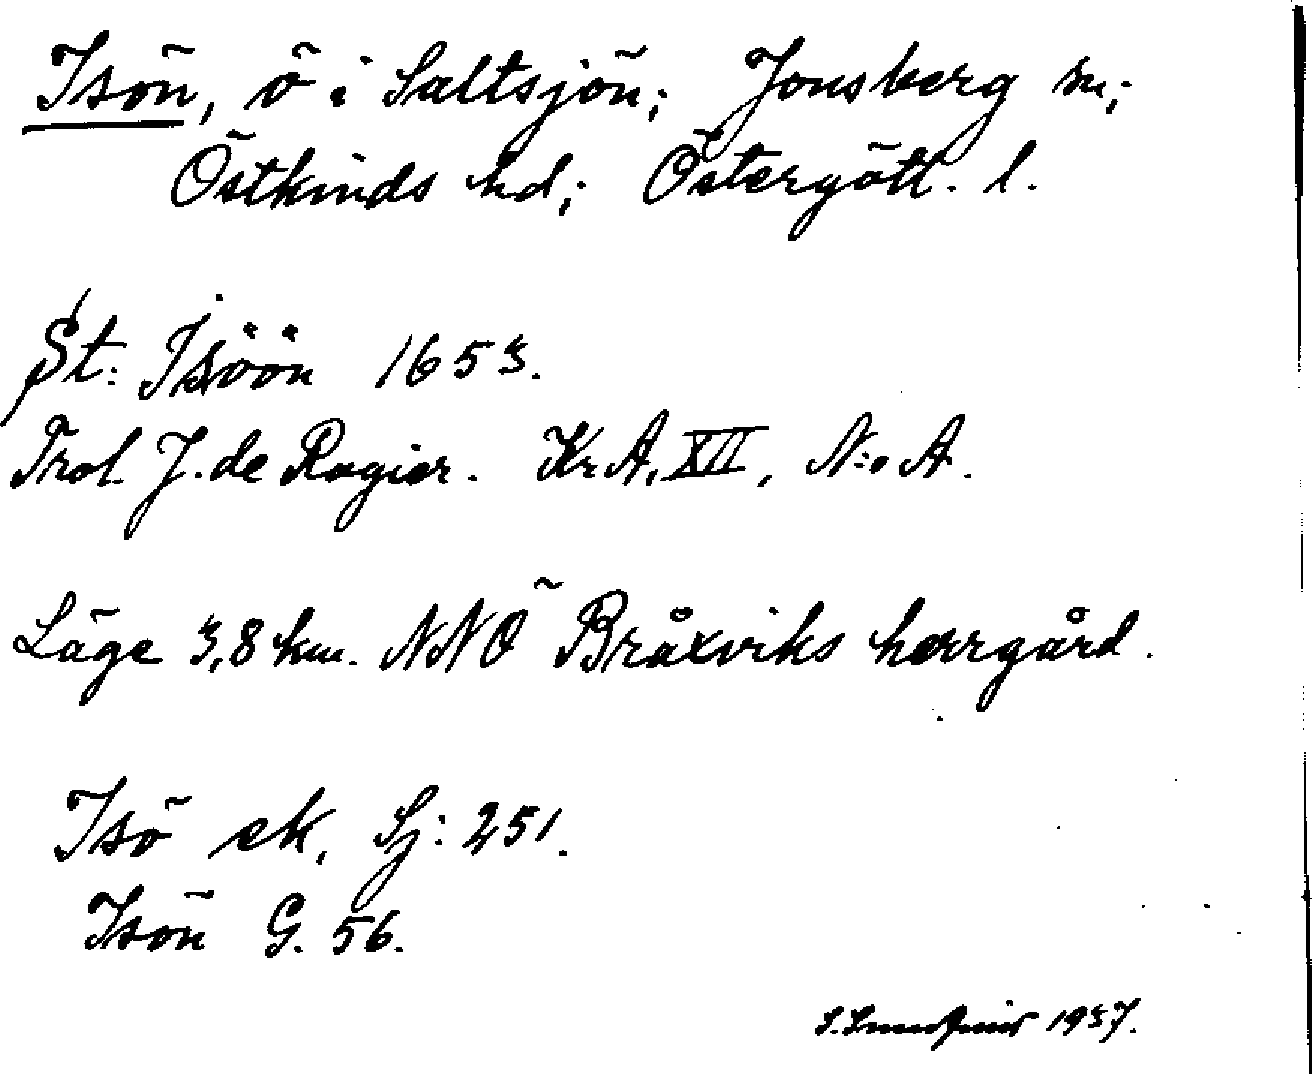 Isön, ö i Saltsjön; Jonsberg sn;
Östkinds hd; Östergötl. l.
St: Isöön 1653.
Trol. J. de Rogier. Kr.A. XII, N:o A.
Läge 3,8 km. NNÖ Bråxviks herrgård.
Isö ek, Sj: 251.
Isön G. 56.
1937.